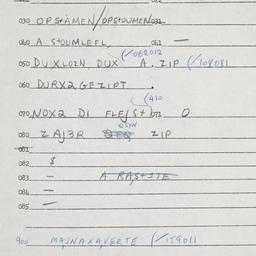 030 OPSTAMEN/OPSTOUMEN 032
040 A STOUMLEFL 041 —
(/062012
050 DUXLOZN, DUX A. ZIP (/108081
060 DURX2 GEZIPT .
(410
070 NOX2 DI FLEJST 071 O
080 2 AJ3R ZIP
081
082 $
083 — A RASTJTE
084 —
085 —
900 MAJNAXAVERTE (/159011